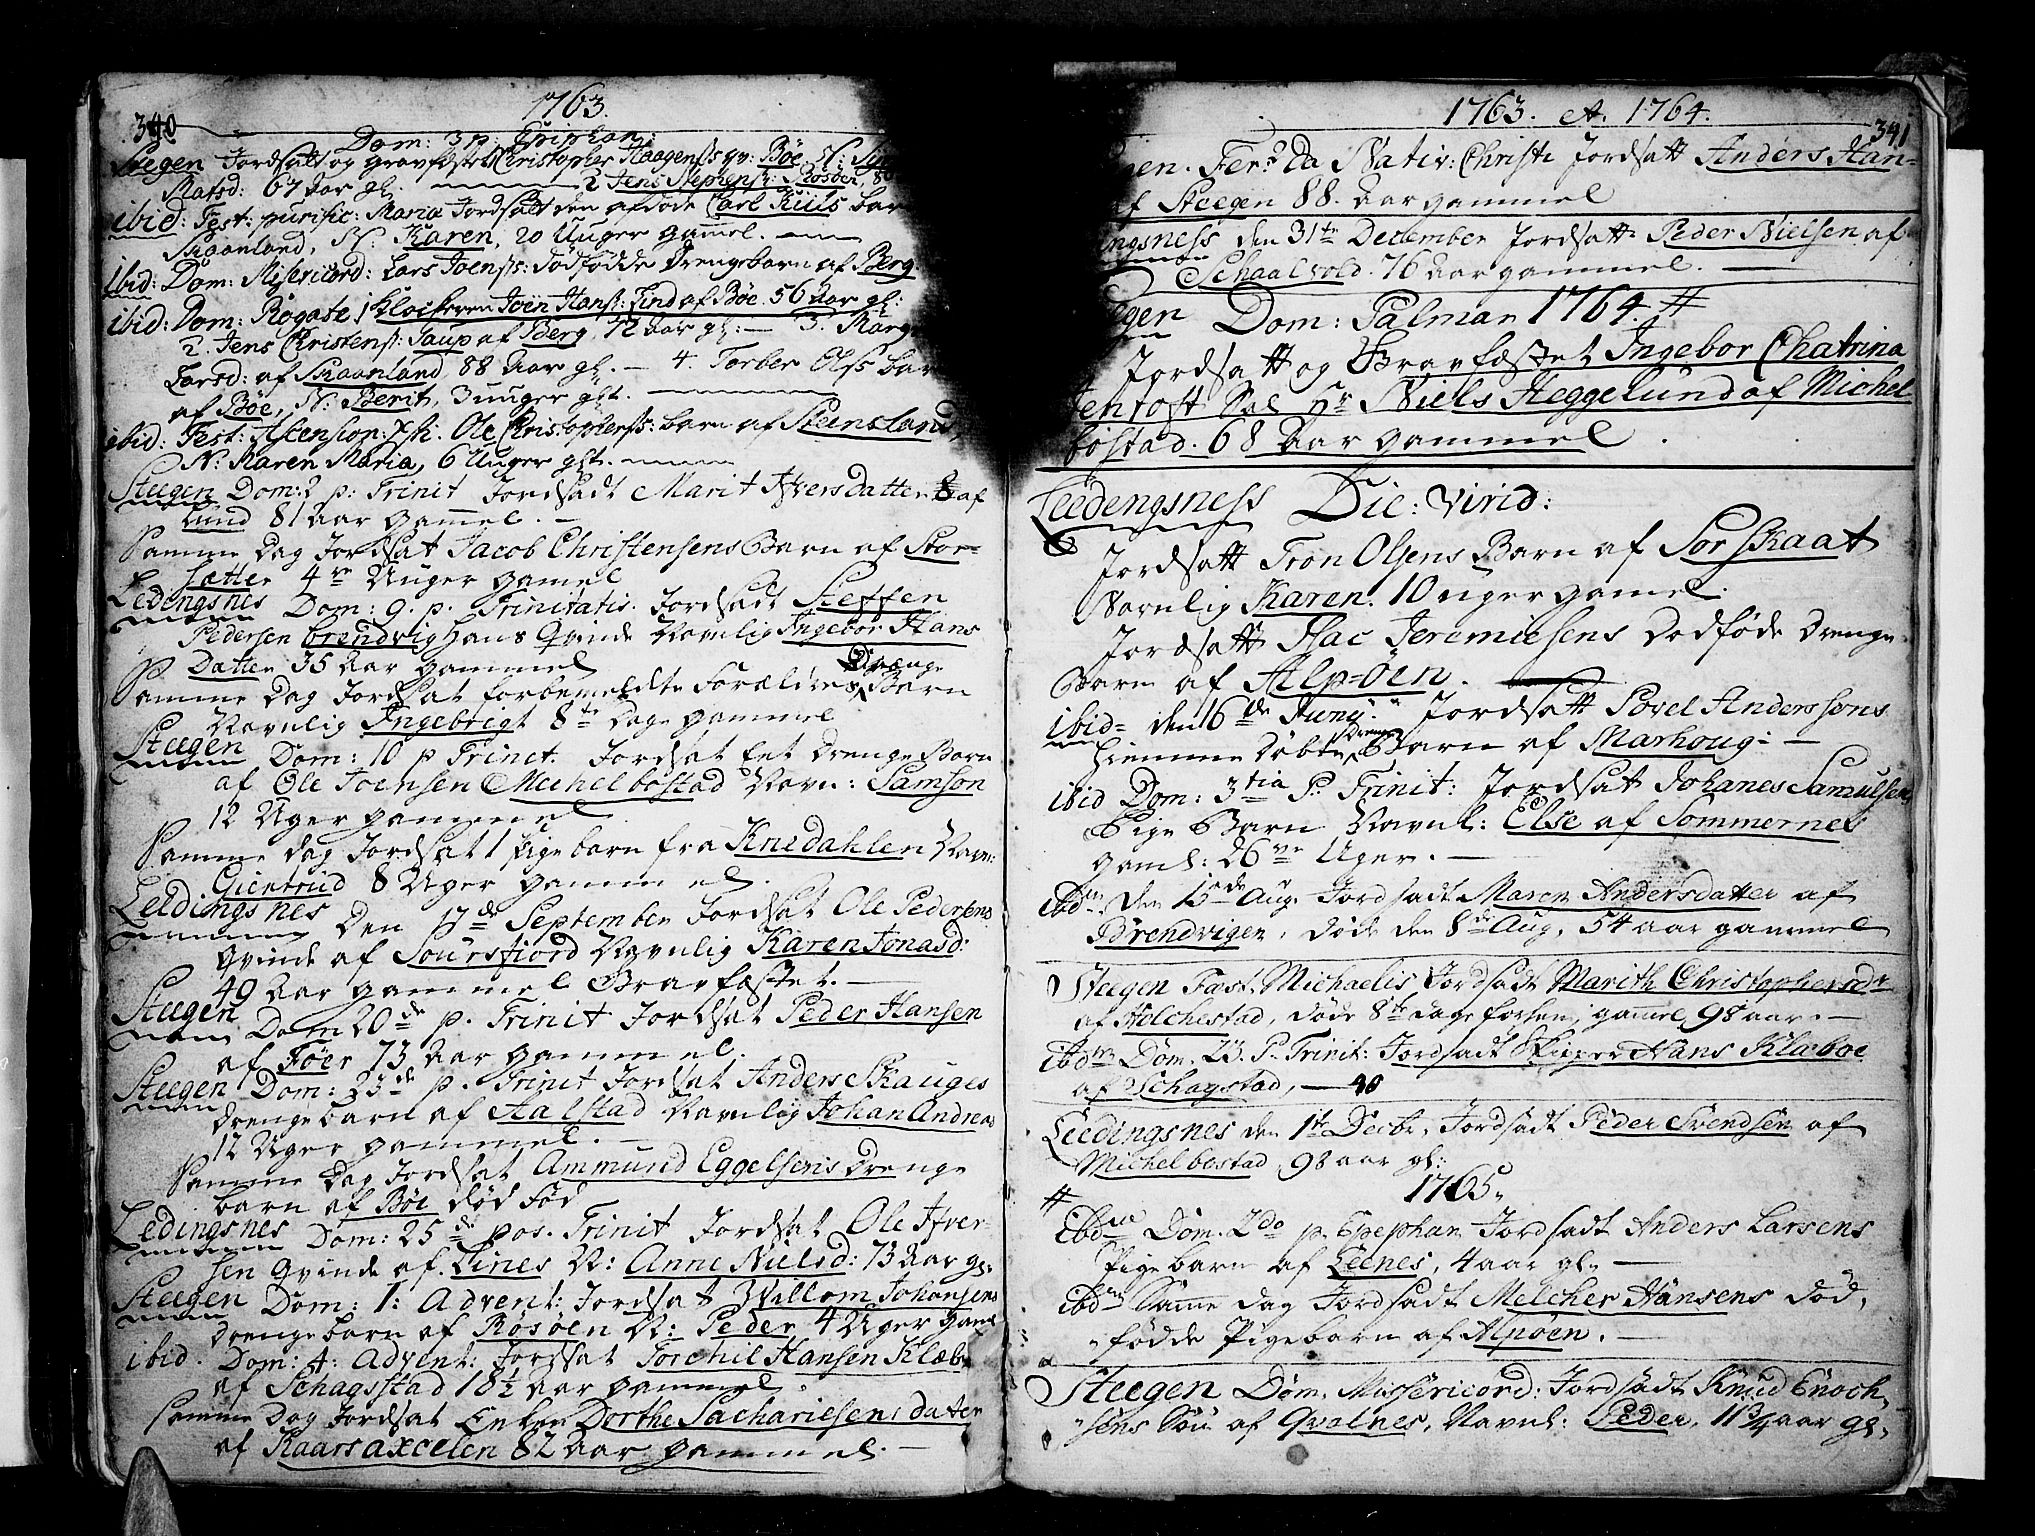 340
1763.
Dom: 3 p: Epiphan:
Steegen Jordsatt og gravfæstet Christopher Haagenss: qv: Bøe N:
Matsd: 67 Aar gl. 2 Jens Stephenss: Røsøen,
ibid: Fest: purific: Mariæ Jordsatt den afdøde Carl Kiils bar
Skaanland, N: Karen, 20 Uuger gamel.
ibid: Dom: Misericord: Lars Joenss: dødfødde drengebarn af Berg
ibid: Dom: Rogate 1 Klockeren Joen Hanss: Lind af Bøe 56 Aar gl:
2. Jens Christenss: Taup af Berg, 72 Aar gl: — 3. Marg
Larsd: af Skaanland 88 Aar gl. — 4. Torber Olss bar
af Bøe, N: Berit, 3 uuger glt.
ibid: Fest: Ascension: Xsti. Ole Christopherss: barn af Steensland,
N: Karen Maria, 6 Uuger glt.
Steegen Dom: 2 p: Trinit Jordsadt Marit Ifversdatter af
Lund 81 aar gammel. —
Samme Dag Jordsat Jacob Christensens Barn af Stor=
sætter 4re Uuger gamel
Ledingsnes Dom: 9. p. Trinitatis. Jordsadt Steffen
Pedersen brendvig hans Qvinde Navnlig Ingebor Hans
Datter 35 Aar gammel
Samme Dag Jordsat forbemeldte Forældres Drænge Barn
Navnlig Ingebrigt 8te Dage gammel
Steegen Dom: 10 p Trinit. Jordsat Eet Drenge Barn
af Ole Joensen Michelbostad Navn: Samson
12 Uger gammel
Samme dag Jordsat 1 pige barn fra Knedahlen Navn:
Giertrud 8 Uger gammel.
Leedingsnes Den 17de September Jordsat Ole Pedersens
Qvinde af Soursfiord Navnlig Karen Jonasd:
49 Aar gammel Gravfæstet. —
Steegen Dom 20de p. Trinit Jordsat Peder Hansen
af Føer 73 Aar gammel.
Steegen Dom: 23de p. Trinit Jordsat Anders Skauges
drenge barn af Aalstad Navnlig Johan Andreas
12 Uger gammel. —
Samme Dag Jordsat Ammund Eggelsens Drenge
barn af Bøe død Fød
Ledingsnes Dom: 25de pos. Trinit Jordsat Ole Ifver-
sen Qvinde af Lines N: Anne Nielsd: 73 Aar gl.
Steegen Dom: 1: Advent: Jordsat Willom Johansens
drenge barn af Røsøen N: Peder 4 Uger gaml
ibid. Dom: 4: Advent: Jordsat Torchil Hansen Klæb
af Schagsstad 18½ Aar gammel.
Samme Dag Jordsat Enken Dorthe Sachariesens datter
af Kaarsaxcelen 82 Aar gammel. —
1763. A. 1764.
341
gen. Fer: 2da Nativ: Christi Jordsatt Anders Han=
af Steegen 88. Aar gammel
ingsness den 31te December Jordsatt Peder Nielsen af
Schaalvold. 76 Aar gammel. —
egen Dom: Palmar 1764. #
Jordsatt og Gravfæstet Ingebor Chatrina
Jentoft Sal Hr Niels Heggelund af Michel
bostad. 68 Aar gammel.
Leedengsness Die: virid:
Jordsatt Tron Olsens Barn af Sørskaat
Navnlig Karen. 10 uger gamel.
Jordsatt Isac Jeremiesens Dødføde Drenge
Barn af Alp=Øen. —
ibid= den 16de Juny: Jordsatt Povel Anderssøns
hiemme Døbte Drenge Barn af Marhoug: —
ibid Dom: 3tia P. Trinit: Jordsat Johanes Samulsen
Pige Barn Navnl: Else af Sommernes
gaml: 26ve Uger. —
ibdm. Den 15de Aug. Jordsadt Maren Andersdatter af
Brendvigen, døde den 8de Aug, 54 aar gammel
Steegen Fæst. Michaelis Jordsadt Marith Christophersdr
af Holchestad, døde 8te dage forhen, gamel, 98 aar. —
ibdm Dom. 23. P. Trinit: Jordsadt Skipper Hans Klæboe
af Schagstad, — 40
Leedingsnes den 1te Decbr, Jordsadt Peder Svendsen af
Michelbostad, 98 aar gl:
# 1765.
ibdm Dom. 2do p. Epephan Jordsadt Anders Larsens
Pige barn af Leenes, 4 aar gl. —
ibdm Samme dag Jordsadt Melcher Hansens død,
fødde Pigebarn af Alpøen. —
Steegen Dom. Missericord: Jordsadt Knud Enoch,
sens Søn af Qvalnes, Navnl: Peder, 11¾ aar gl.